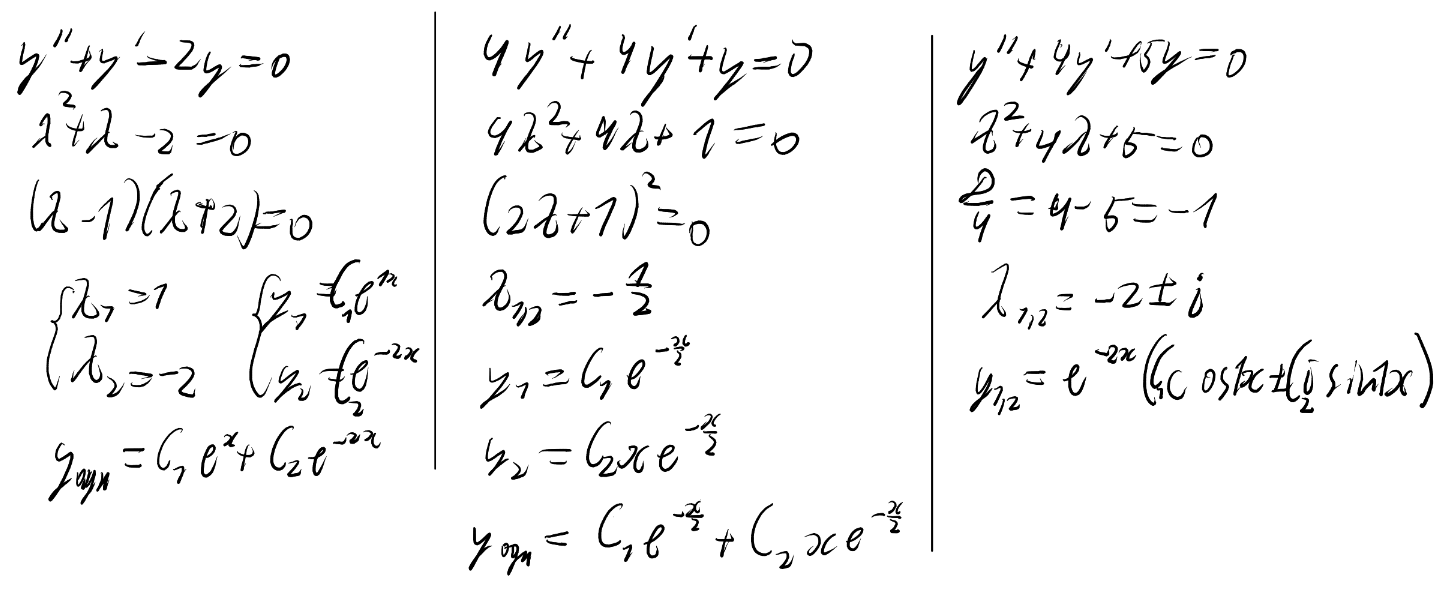 y'' + y' - 2y = 0
λ² + λ - 2 = 0
(λ - 1)(λ + 2) = 0
{ λ₁ = 1 { y₁ = C₁e^{1x}
λ₂ = -2 y₂ = C₂e^{-2x}
y_{одн} = C₁e^{x} + C₂e^{-2x}
4y'' + 4y' + y = 0
4λ² + 4λ + 1 = 0
(2λ + 1)² = 0
λ_{1,2} = -\frac{1}{2}
y₁ = C₁e^{-\frac{x}{2}}
y₂ = C₂xe^{-\frac{x}{2}}
y_{одн} = C₁e^{-\frac{x}{2}} + C₂xe^{-\frac{x}{2}}
y'' + 4y' + 5y = 0
λ² + 4λ + 5 = 0
\frac{D}{4} = 4 - 5 = -1
λ_{1,2} = -2 ± i
y_{1,2} = e^{-2x}(C₁cos1x ± C₂i sin1x)